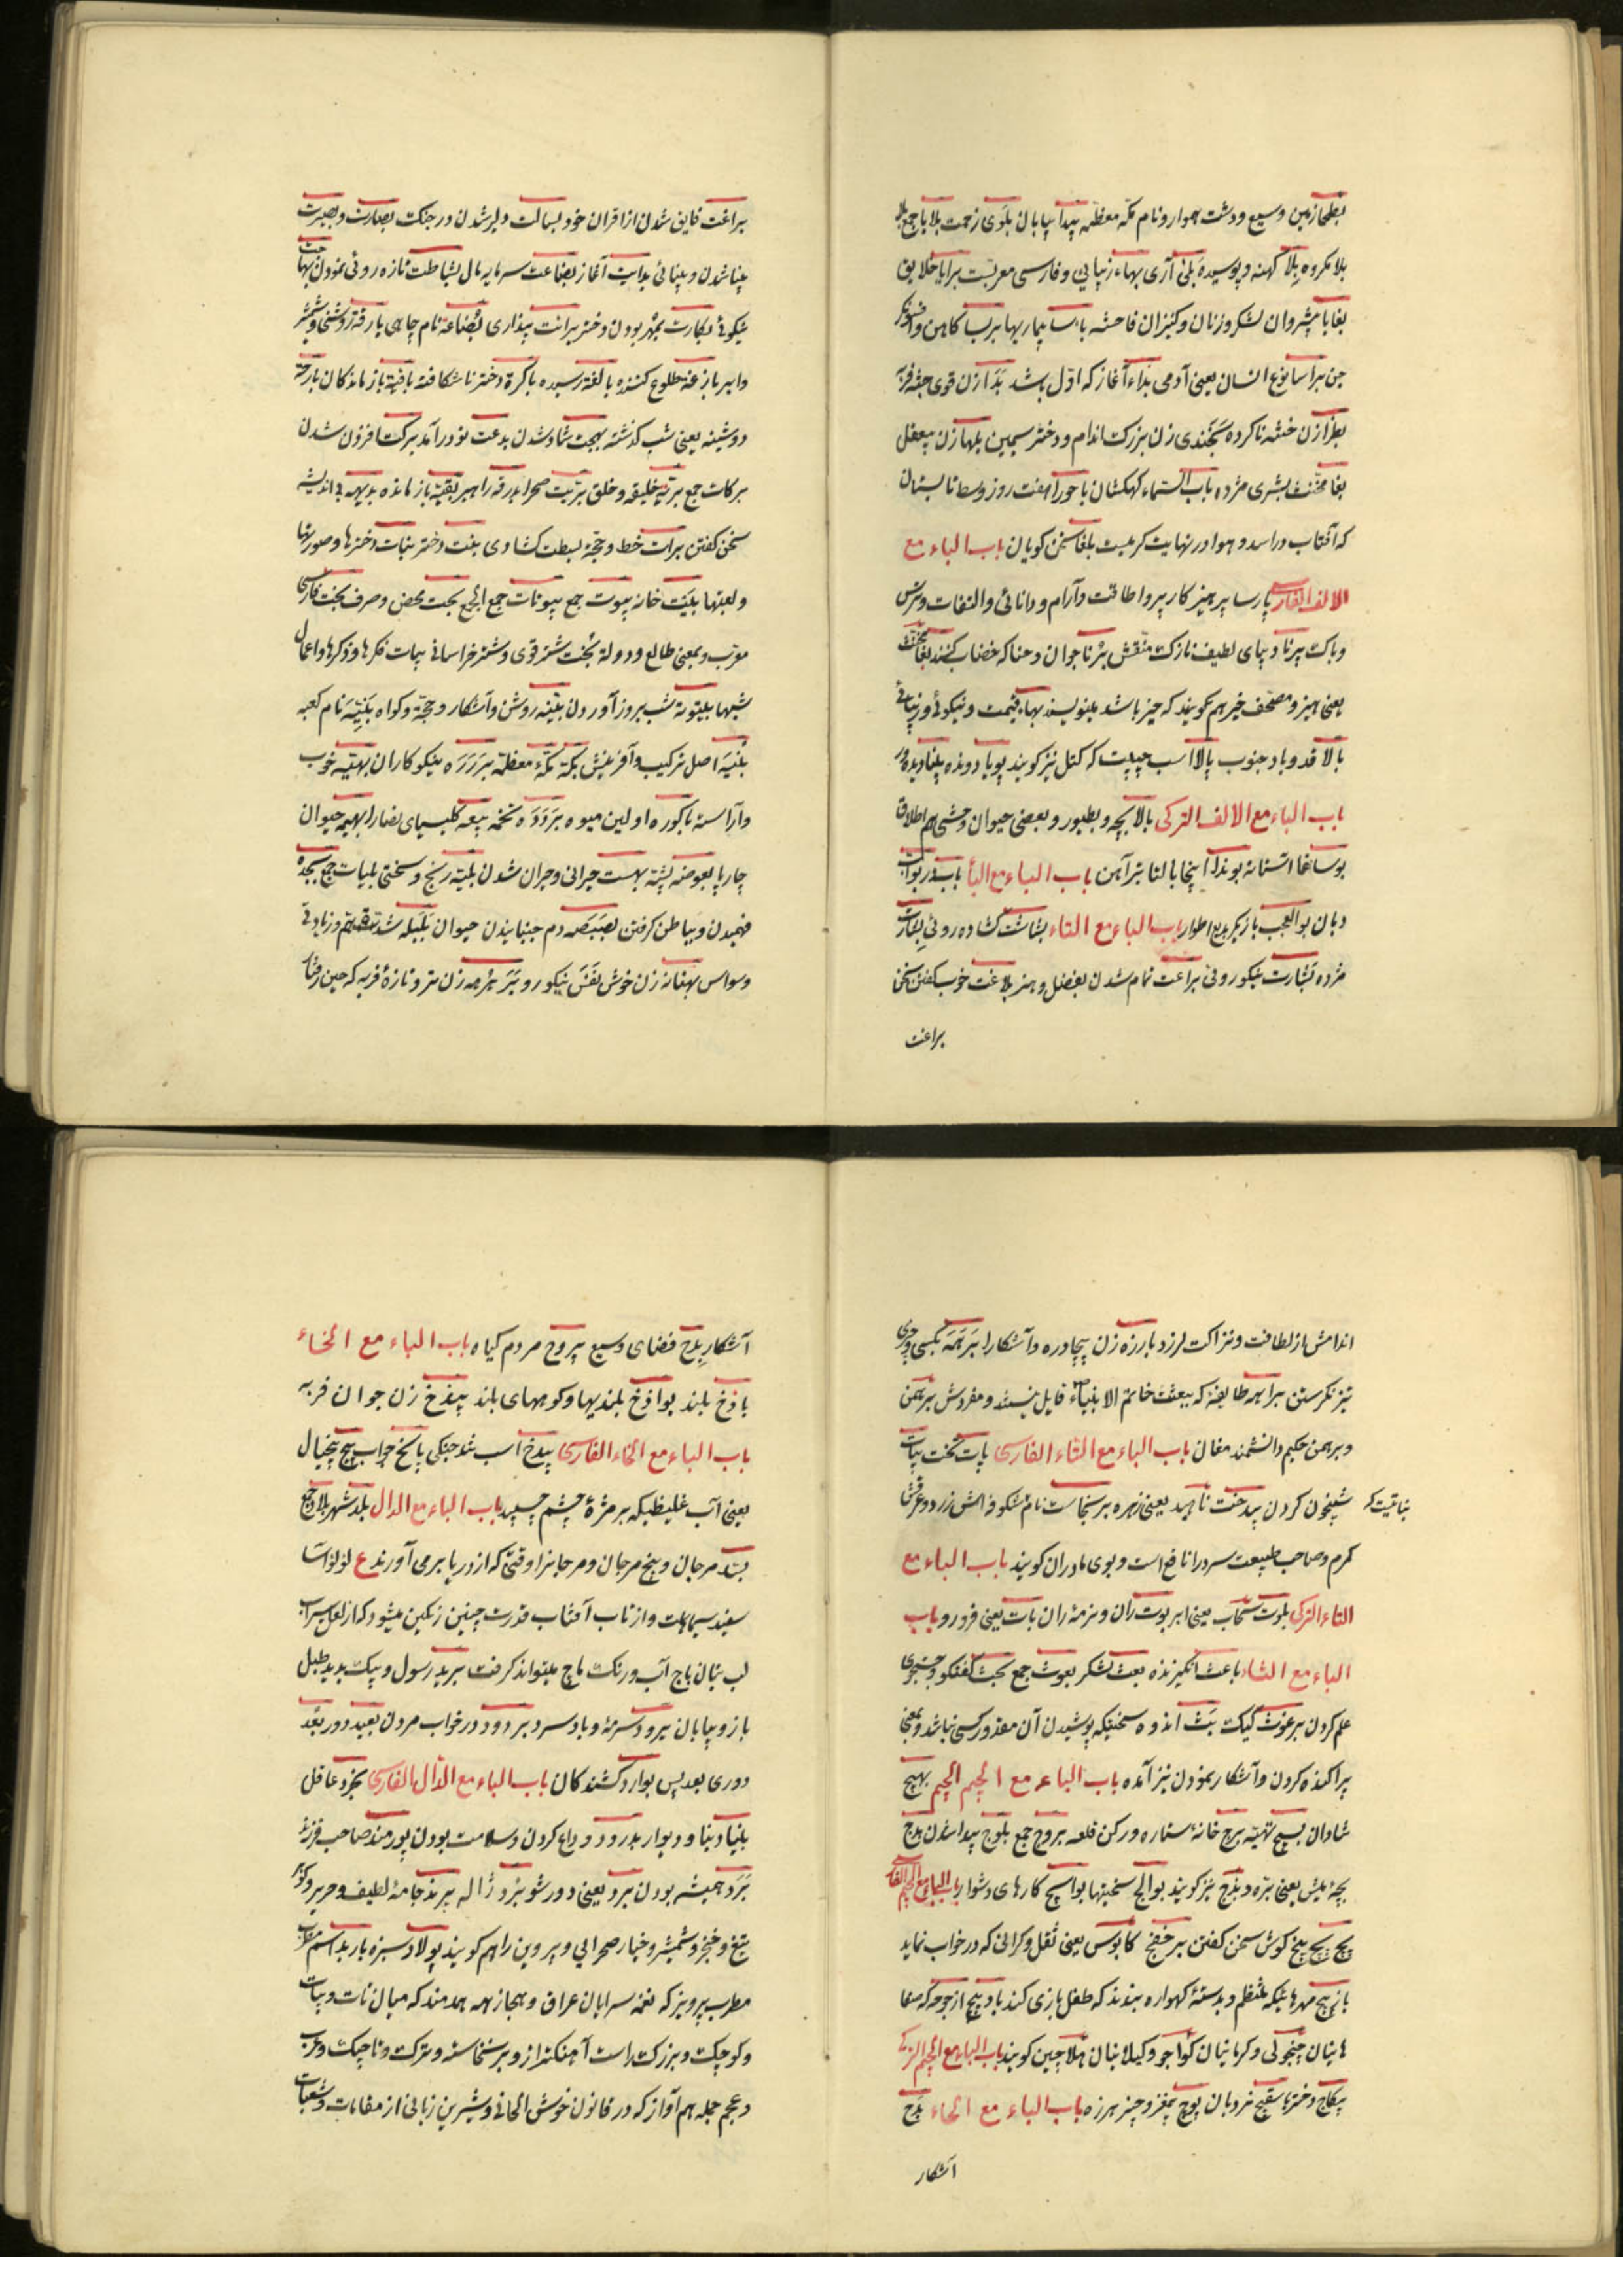 بطحا زمین وسیع و دشت هموار و نام مکه معظمه بیدا بیابان بلوی زحمت بلایا جمع بلا
بلا مکروه بلا کهنه و پوسیده بلی آری بهاء زیبایی و فارسی معربست برایا خلایق
بغایا پیشروان لشکر و زنان و کنیزان فاحشه باسا بیماریها بربسا کاهن و
جن براسا نوع انسان یعنی آدمی بداء آغاز که اول باشد بدا زن قوی جثه فربه
بظرا زن ختنه ناکرده بخندی زن بزرک اندام و دختر سیمین بلها زن بیعقل
بغا مخنث بشری مژده باب السماء کهکشان باحورا هفت روز وسط تابستان
که آفتاب در اسد و هوا در نهایت کرمیست بلغا سخن کویان باب الباء مع
الالف الفارسی پارسا پرهیزکار پروا طاقت و آرام و دانائی و التفات و ترس
و باک پرنا دیبای لطیف نازک منقش برنا جوان و حنا که خضاب کنند بغا مخنث
یعنی هیز و مصحف خیر هم کویند که حیز باشد بنویسند بهاء قیمت و نیکوئی و زیبائی
بالا قد و باد جنوب بالا اسب جنیبت که کتل نیز کویند پویا دونده بینا دیده ور
باب الباء مع الالف التركی بالا بچه و بطیور و بعضی حیوان وحشی هم اطلاق
بوساغا استانه بوندا اینجا بالتا تبر آهن باب الباء مع الباء باب در بواب
دبان بوالعجب بازیکر بدیع اطوار باب الباء مع التاء بشاشت کشاده روئی بشارت
مژده بشارت نیکوروئی براعت تمام شدن بفضل و هنر بلاغت خوب کفتن سخن
براعت
براعت فایق شدن از اقران خود بسالت دلیر شدن در جنک بصارت و بصیرت
بینا شدن و بینائی بدایت آغاز بضاعت سرمایه مال بشاطت تازه روئی نمودن بهاجت
نیکوئی بکارت بمهر بودن دختر برائت بیزاری بضاعة نام چاهی بارقة روشنی و شمشیر
و ابر بازغة طلوع کننده بالغة رسیده باکرة دختر ناشکافته باقیة بازماندکان بارحة
دوشینه یعنی شب کذشته بهجت شاد شدن بدعت نو درآمد برکت افزون شدن
برکات جمع بریة خلیقه و خلق بریت صحرا بدرقه راهبر بقیة باز مانده بدیهه بی اندیشه
سخن کفتن برات خط و حجة بسطت کشادی بنت دختر بنات دخترها و صورتها
و لعبتها بیت خانه بیوت جمع بیوتات جمع الجمع بحت محض و صرف بخت فارسی
معرب و بمعنی طالع و دولة بخت شتر قوی و شتر خراسانی بیات فکرها و ذکرها و اعمال
شبها بیتوتة شب بروز آوردن بینه روشن و آشکار و حجة و کواه بنیة نام کعبه
بنیة اصل ترکیب و آفرینش بکة مکه معظمه بررة نیکوکاران بهیة خوب
و آراسته باکوره اولین میوه بردة تخمه بیعه کلیسیای نصارا بهیمه حیوان
چارپا بعوضه پشه بهت حیرانی و حیران شدن بلیة رنج و سختی بلیات جمع بجدة
فهمیدن و بباطن کرفتن بصبصه دم جنبانیدن حیوان بلبله شدت هم و زیادتی
وسواس بهنانه زن خوش نفس نیکورو برهرهه زن تر و تازه فربه که حین رفتار
اندامش از لطافت و نزاکت لرزد بارزه زن بیچادره و آشکارا برهمه بکسی و چیزی
تیز نکرستن براهمه طایفة که ببعثت خاتم الانبیاء قایل نیستند و مفردش برهمن
و برهمن حکیم دانشمند مغان باب الباء مع التاء الفارسی پات تخت بیات
شبیخون کردن بیدخت ناهید یعنی زهره برنجاست نام شکوفه اش زرد و عرقش
کرم و صاحب طبیعت سرد را نافع است و بوی مادران کویند باب الباء مع
التاء التركی بلوت سحاب یعنی ابر بوت ران و نرمۀ ران بات یعنی فرو رو باب
الباء مع الثاء باعث انکیزنده بعث لشکر بعوث جمع بحث کفتکو و جستجوی
علم کردن برغوث کیک بث اندوه سختیکه پوشیدن آن مقدور کسی نباشد و بمعنی
پراکنده کردن و آشکار نمودن نیز آمده باب الباء مع الجیم الجیم بهیج
شادان بسیج تهیئه برج خانۀ ستاره و رکن قلعه بروج جمع بلوج پیدا شدن بذج
بچۀ میش یعنی بره و بذج نیز کویند بوالج سختیها بواسیج کارهای دشوار باب الباء مع الجیم الفارسی
پچ پچ بیخ کوش سخن کفتن برخفج کابوس یعنی ثقل و کرانی که در خواب نماید
بازپیچ مهرهائیکه منظم و بدستۀ کهواره بندند که طفل بازی کند بادپیچ ارجوحه که صفا
هانیان چنجولی و کرمانیان کواجو و کیلانیان هلاجین کویند باب الباء مع الجیم التركی
بیکاج دختر باسقیج نردبان پوچ بیمغز و چیز هرزه باب الباء مع الحاء بدح
آشکار
آشکار بدح فضای وسیع یبروح مردم کیاه باب الباء مع الخاء
باذخ بلند بواذخ بلندیها و کوههای بلند بیدخ زن جوان فربه
باب الباء مع الخاء الفارسی بیدخ اسب تند جنکی پاسخ جواب پیخ پیخال
یعنی آب غلیظیکه بر مژۀ چشم چسپد باب الباء مع الدال بلد شهر بلاد جمع
بسد مرجان و بیخ مرجان و مرجانرا وقتی که از دریا برمی آورند ع لؤلؤآسا
سفید سیماست و از تاب آفتاب قدرت چنین رنکین میشود که از لعل سیراب
لب بتان باج آب و رنک باج میتواند کرفت برید رسول و پیک بدید طبل
باز و بیابان برود سرمۀ و باد سرد بردود در خواب مردن بعید دور بعد
دوری بعد پس بوارد کشندکان باب الباء مع الدال الفارسی بخرد عاقل
بنیاد بنا و دیوار بدرود وداع کردن و سلامت بودن پورمند صاحب فرزند
برد همیشه بودن برد یعنی دور شو برد ژاله پرند جامۀ لطیف و حریر و
تیغ و خنجر و شمشیر و خیار صحرایی و پروین را هم کویند پولاد سبزه باربد اسم
مطرب پرویز که نغمه سرایان عراق و حجاز همه همدمند که میان نات و بیات
و کوچک و بزرک راست آهنکتر از وبر نخاسته و ترک و تاجیک و عرب
و عجم جمله هم آواز که در قانون خوش الحانی و شیرین زبانی از مقامات و شعبات